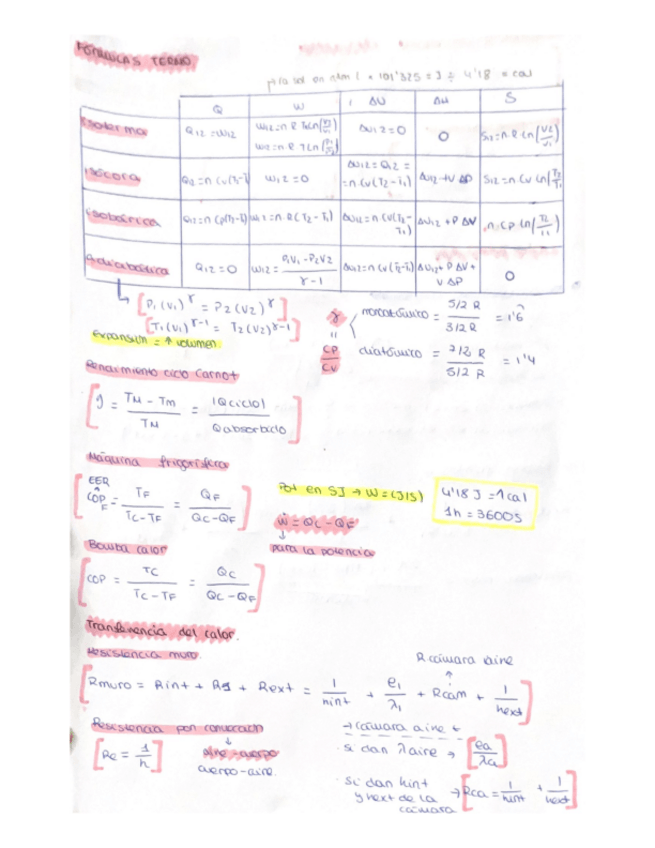 FÓRMULAS TERMO
para sol en atm l × 101'325 = J ÷ 4'18 = cal
Q W ΔU ΔH S
Isoterma Q12 = W12 W12 = n R T Ln(V2/V1) W12 = n R T Ln(P1/P2) ΔU12 = 0 0 S12 = n R Ln(V2/V1)
Isócora Q12 = n Cv(T2-T1) W12 = 0 ΔU12 = Q12 = = n Cv(T2-T1) ΔU12 + V ΔP S12 = n Cv Ln(T2/T1)
Isobárica Q12 = n Cp(T2-T1) W12 = n R(T2-T1) ΔU12 = n Cv(T2-T1) ΔU12 + P ΔV n Cp Ln(T2/T1)
Adiabática Q12 = 0 W12 = P1V1 - P2V2 / γ-1 ΔU12 = n Cv(T2-T1) ΔU12 + P ΔV + V ΔP 0
[P1(V1)^γ = P2(V2)^γ]
[T1(V1)^γ-1 = T2(V2)^γ-1]
γ = CP/CV
monoatómico = 5/2 R / 3/2 R = 1'6
diatómico = 7/2 R / 5/2 R = 1'4
expansión = ↑ volumen
Rendimiento ciclo Carnot
η = TM - Tm / TM = |Qciclo| / Qabsorbido
Máquina frigorífica
EER
COPF = TF / TC-TF = QF / QC-QF
Pot en SI → W = (J/S)
4'18 J = 1 cal
1h = 3600s
Ẇ = QC - QF
para la potencia
Bomba calor
COP = TC / TC-TF = QC / QC-QF
Transferencia del calor.
Resistencia muro.
R cámara aire
Rmuro = Rint + R1 + Rext = 1/hint + e1/λ1 + Rcam + 1/hext
Resistencia por convección
Rc = 1/h
aire-cuerpo
cuerpo-aire.
→ cámara aire
· si dan λaire → [ea/λa]
· Si dan hint
y hext de la
cámara
→ [Rca = 1/hint + 1/hext]